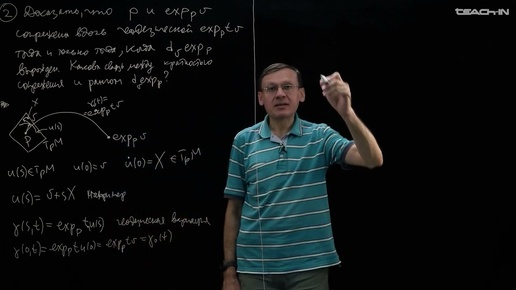 TEACH-IN
② Доказать, что p и exp_p v
сопряжены вдоль геодезической exp_p tv
тогда и только тогда, когда d_v exp_p
вырожден. Какова связь между кратностью
сопряжения и рангом d_v exp_p?
X
γ(t)=
exp_p tv
v
u(s)
p
T_pM
exp_p v
u(s)∈T_pM u(0)=v u̇(0)=X∈T_pM
u(s)=v+sX Например
γ(s,t)=exp_p tu(s) геодезическая вариация
γ(0,t)=exp_p tu(0)=exp_p tv=γ_0(t)